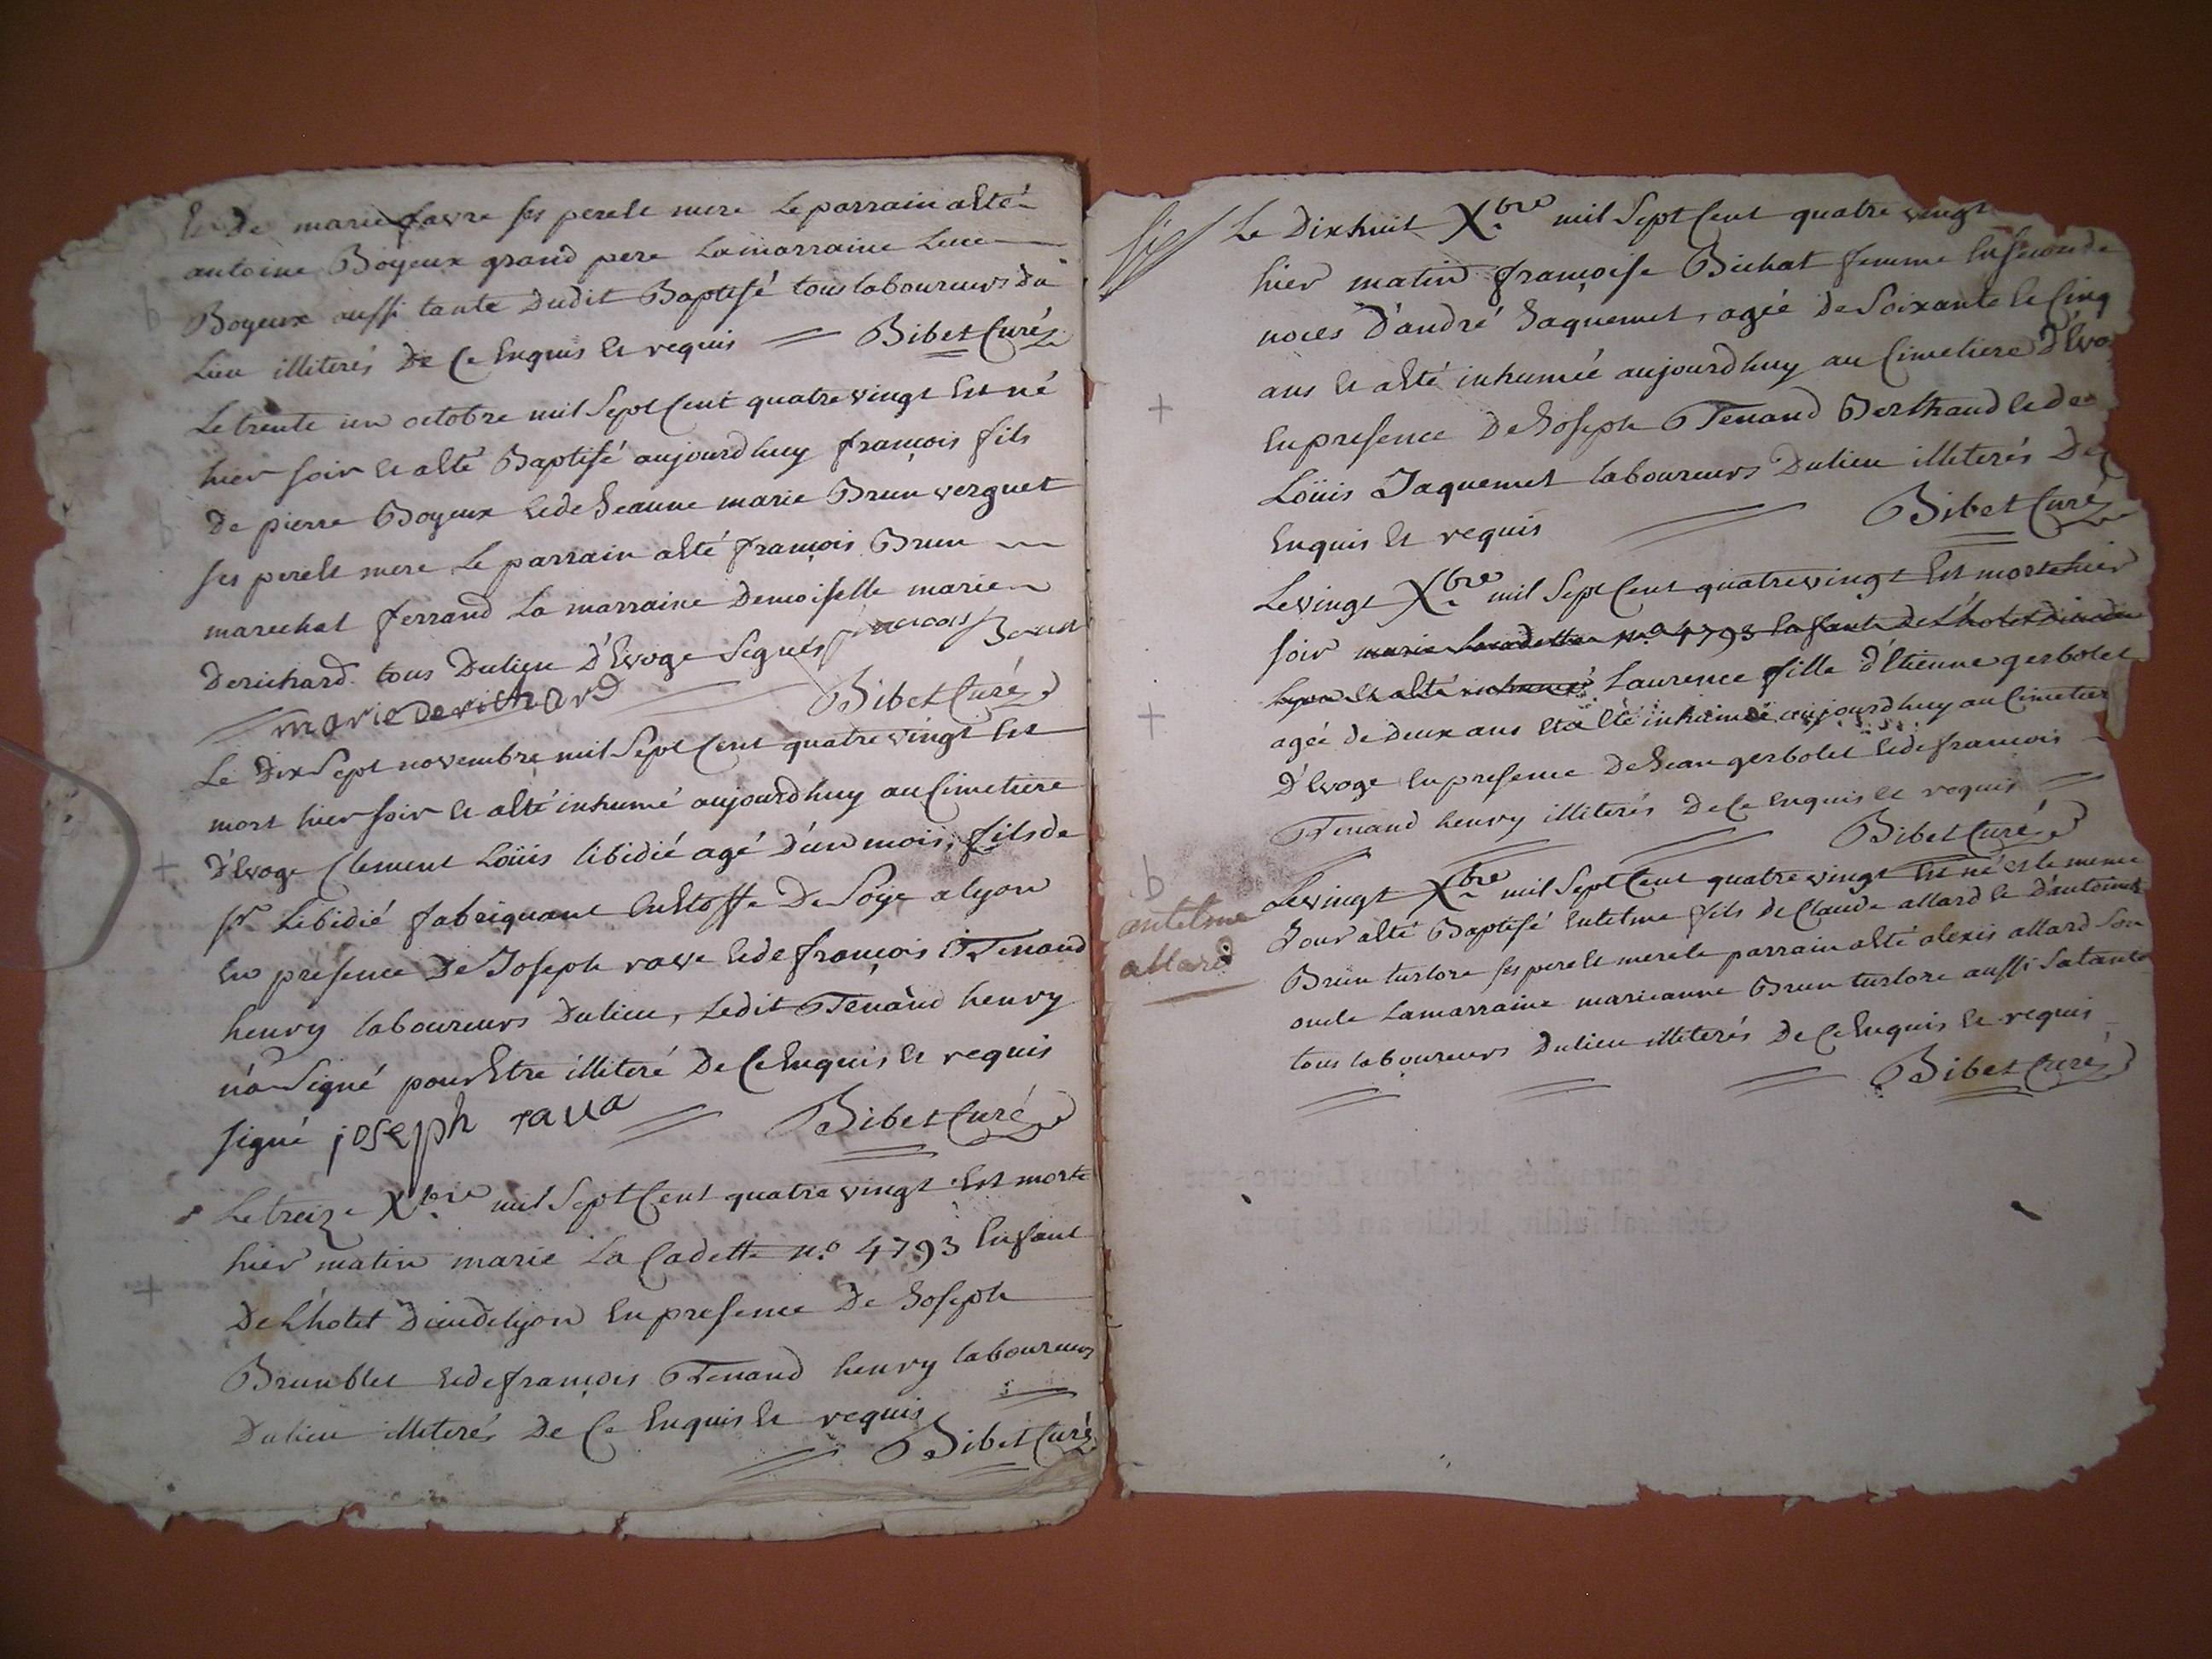 Et De marie favre ses pere et mere Le parrain a Eté
antoine Boyeux grand pere La marraine Luce
Boyeux aussi tante Dudit Baptisé tous laboureurs Du
Lieu illiterés De Ce Enquis Et requis Bibet Curé
Le trente un octobre mil Sept Cent quatre vingt Est né
hier soir Et a Eté Baptisé aujourdhuy françois fils
De pierre Boyeux Et de Jeanne marie Brun verguet
ses pere Et mere Le parrain a Eté françois Brun
marechal ferrand La marraine Demoiselle marie
Derichard tous Du lieu D'Evoge Signés francois Brun
marie de richard Bibet Curé
Le Dix Sept novembre mil Sept Cent quatre vingt Est
mort hier soir Et a Eté inhumé aujourdhuy au Cimetiere
D'Evoge Clement Loüis libidié agé D'un mois, fils de
sr Libidié fabriquant En Etoffe De Soye a lyon
En presence De Joseph rave Et de françois Tenand
henry laboureurs Du lieu, Ledit Tenand henry
n'a Signé pour Etre illiteré De Ce Enquis Et requis
signé joseph rava Bibet Curé
Le treize Xbre mil Sept Cent quatre vingt Est morte
hier matin marie La Cadette n.o 4793 Enfant
De L'hotel Dieu de lyon En presence De Joseph
Brun blet Et de françois Tenand henry laboureurs
Du lieu illiterés De Ce Enquis Et requis
Bibet Curé
Le Dix huit Xbre mil Sept Cent quatre vingt
hier matin françoise Bichat femme En seconde
noces D'andré Jaquemet, agée de Soixante Et Cinq
ans Et a Eté inhumée aujourdhuy au Cimetiere D'Evo
En presence De Joseph Tenand Berthaud Et de
Loüis Jaquemet laboureurs Du lieu illiterés De
Enquis Et requis Bibet Curé
Le vingt Xbre mil Sept Cent quatre vingt Est morte hier
soir marie La Cadette n.o 4793 Enfant de L'hotel Dieu de
Lyon Et a Eté inhumée Laurence fille d'Etienne gerbolet
agée de Deux ans Et a Eté inhumée aujourdhuy au Cimetier
D'Evoge En presence De Jean gerbolet Et de françois
Tenand henry illiterés De Ce Enquis Et requis
Bibet Curé
b
antelme
allard
Le vingt Xbre mil Sept Cent quatre vingt Est né Et le meme
Jour a Eté Baptisé Entelme fils De Claude allard Et D'antoinette
Brun turlore ses pere Et mere Le parrain a Eté alexis allard Son
oncle La marraine marieanne Brun turlore aussi Sa tante
tous laboureurs Du lieu illiterés De Ce Enquis Et requis
Bibet Curé